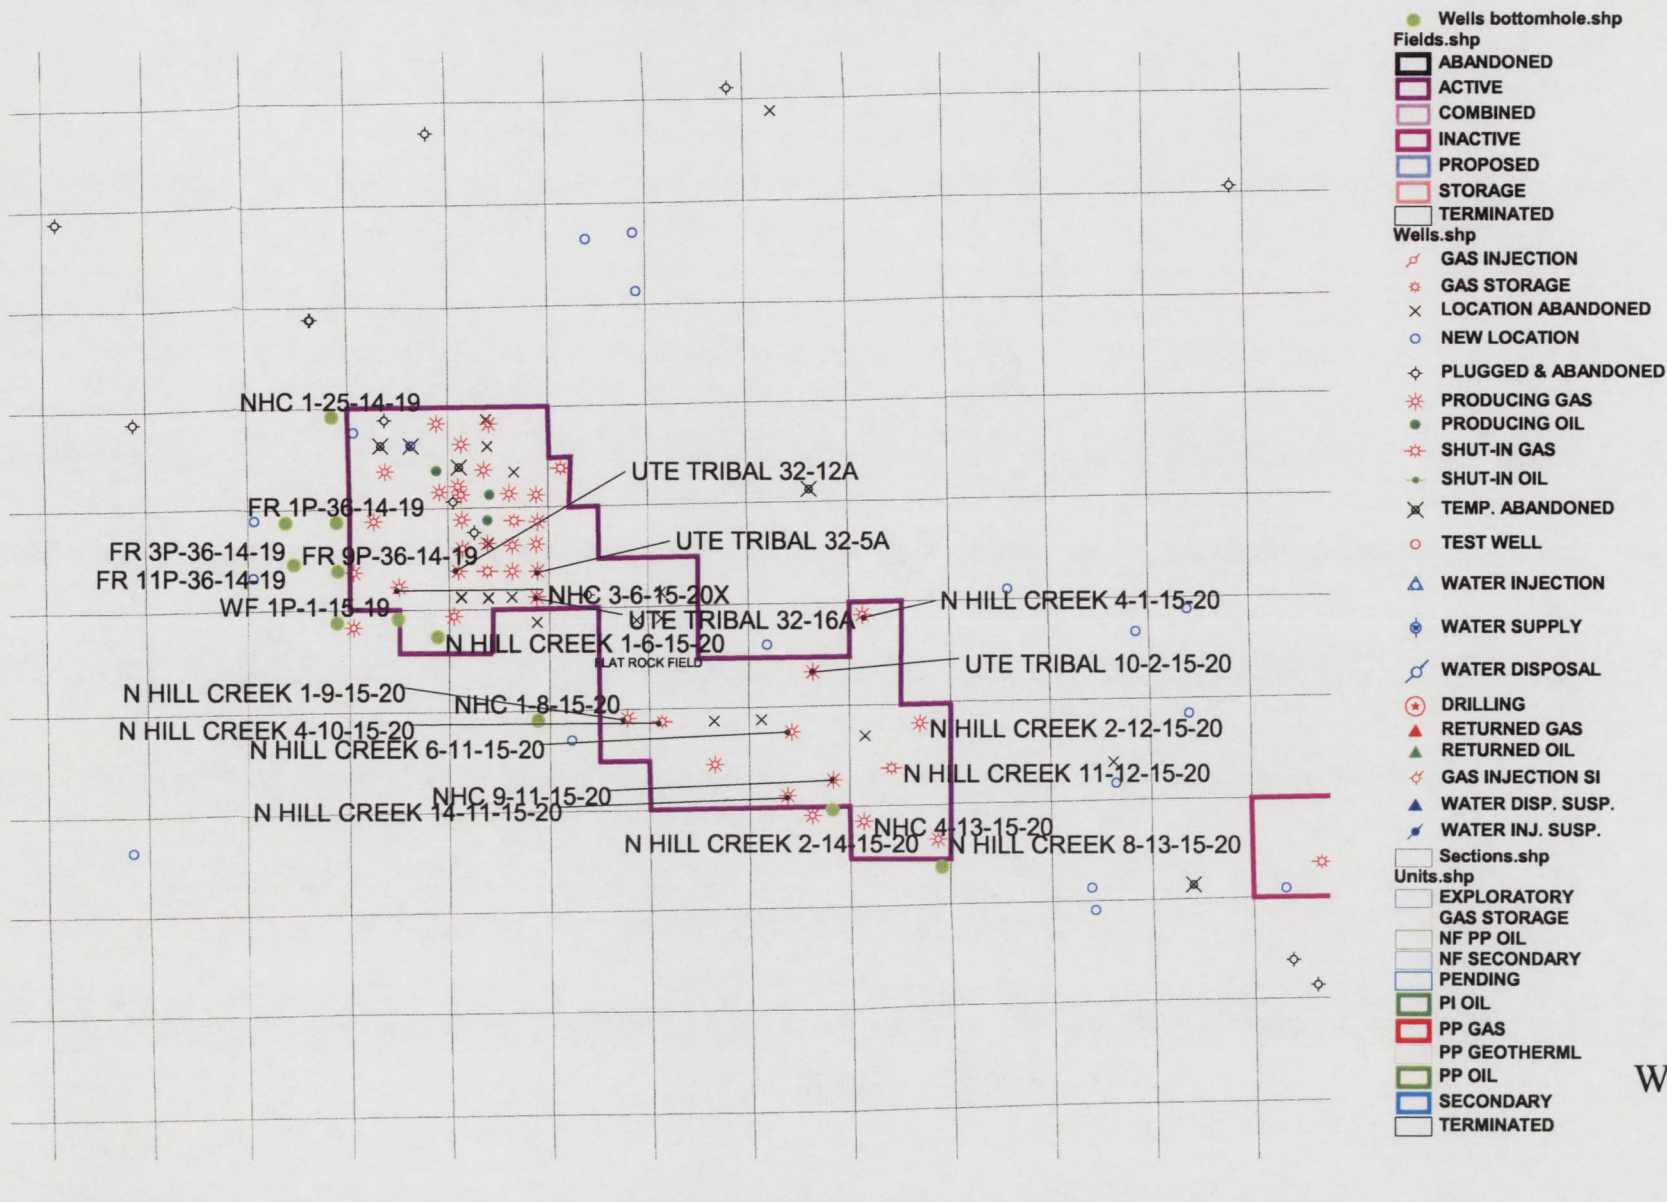 NHC 1-25-14-19
UTE TRIBAL 32-12A
FR 1P-36-14-19
UTE TRIBAL 32-5A
FR 3P-36-14-19
FR 9P-36-14-19
FR 11P-36-14-19
NHC 3-6-15-20X
WF 1P-1-15-19
N HILL CREEK 4-1-15-20
UTE TRIBAL 32-16A
N HILL CREEK 1-6-15-20
FLAT ROCK FIELD
UTE TRIBAL 10-2-15-20
N HILL CREEK 1-9-15-20
NHC 1-8-15-20
N HILL CREEK 4-10-15-20
N HILL CREEK 2-12-15-20
N HILL CREEK 6-11-15-20
N HILL CREEK 11-12-15-20
NHC 9-11-15-20
N HILL CREEK 14-11-15-20
NHC 4-13-15-20
N HILL CREEK 2-14-15-20
N HILL CREEK 8-13-15-20
Wells bottomhole.shp
Fields.shp
ABANDONED
ACTIVE
COMBINED
INACTIVE
PROPOSED
STORAGE
TERMINATED
Wells.shp
GAS INJECTION
GAS STORAGE
LOCATION ABANDONED
NEW LOCATION
PLUGGED & ABANDONED
PRODUCING GAS
PRODUCING OIL
SHUT-IN GAS
SHUT-IN OIL
TEMP. ABANDONED
TEST WELL
WATER INJECTION
WATER SUPPLY
WATER DISPOSAL
DRILLING
RETURNED GAS
RETURNED OIL
GAS INJECTION SI
WATER DISP. SUSP.
WATER INJ. SUSP.
Sections.shp
Units.shp
EXPLORATORY
GAS STORAGE
NF PP OIL
NF SECONDARY
PENDING
PI OIL
PP GAS
PP GEOTHERML
PP OIL
SECONDARY
TERMINATED
W